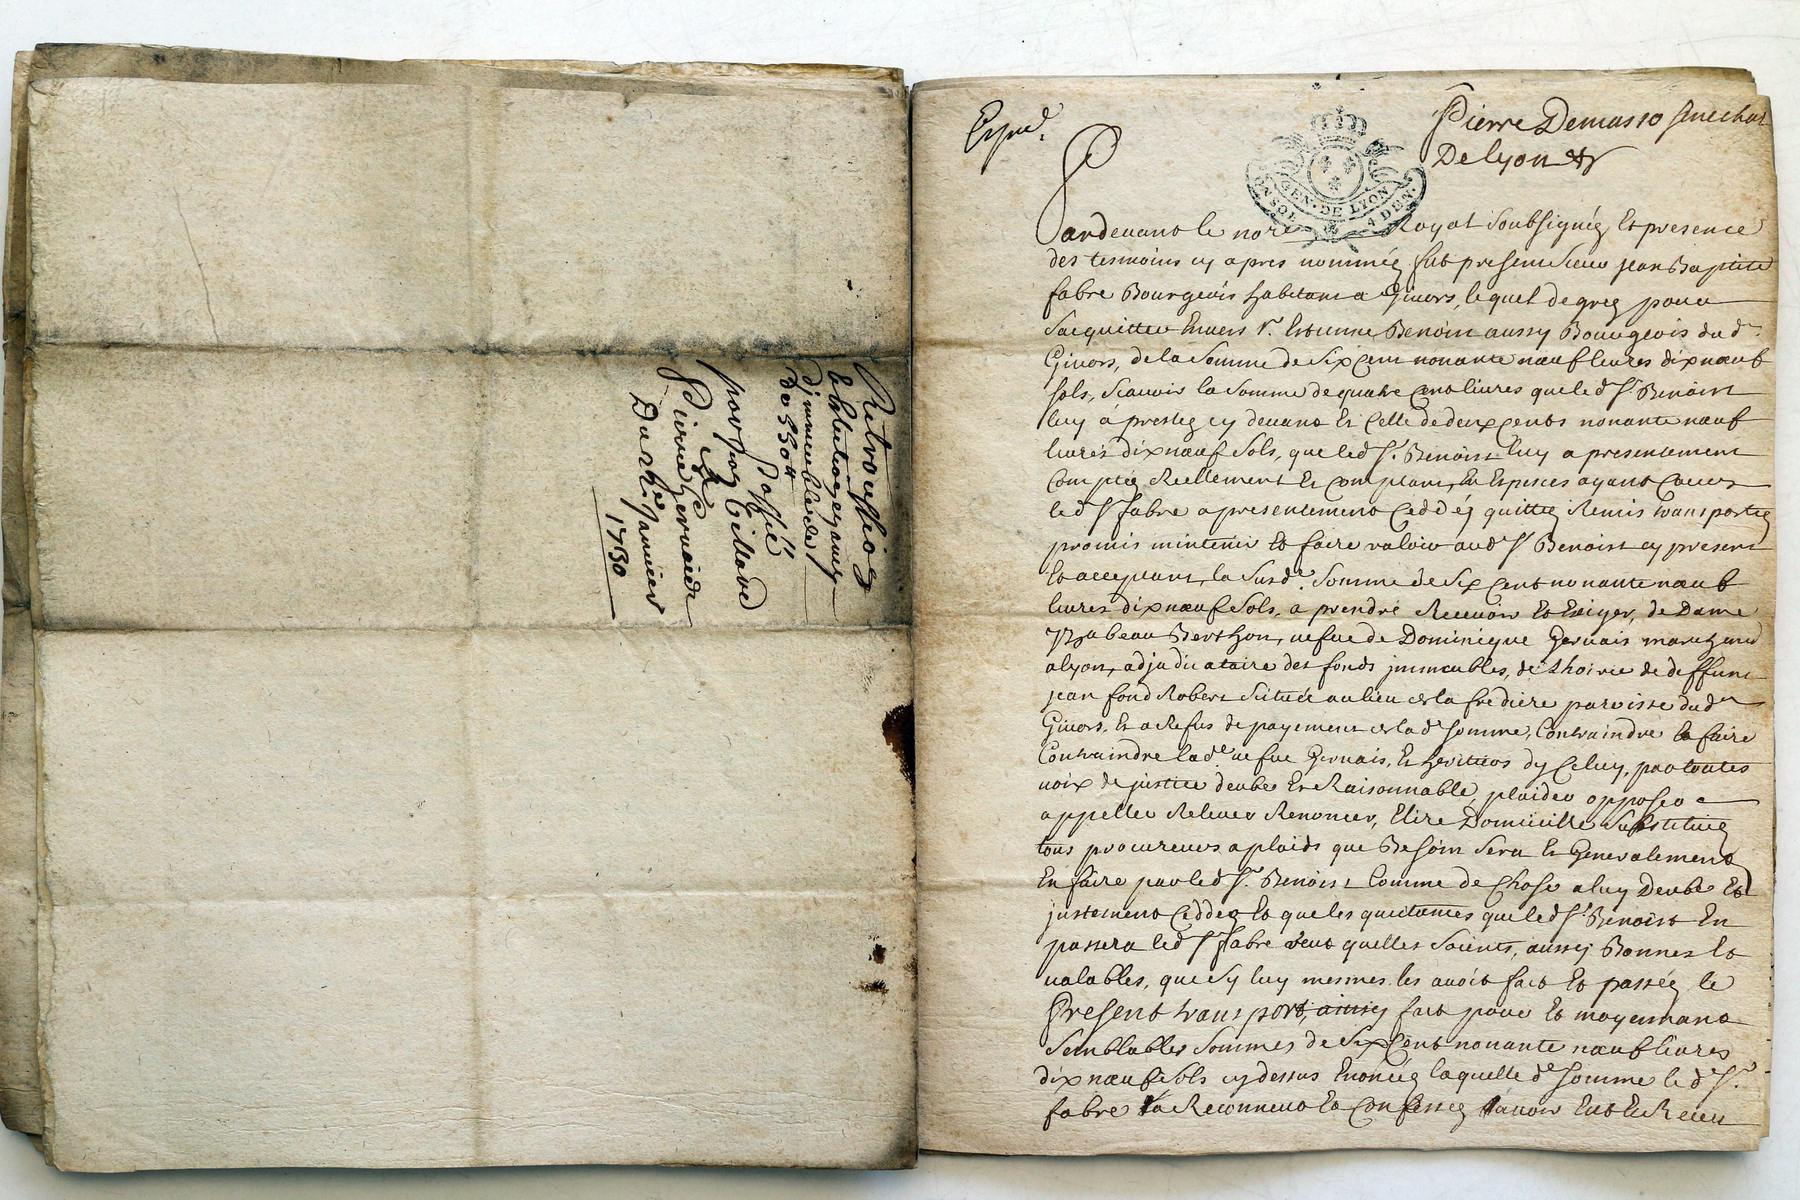 Retroussion
d'immeubles de
De 550 ₶
Passé
par
Pierre Gervais
Du 27e Janvier
1730
Expéd.
GEN · DE LYON
UN SOL 4 DEN.
Pierre Demasso senechal
De lyon &
Pardevant le no.re Royal soubsigné, et presence
des tesmoins cy apres nommés fut present Sieur jean Baptiste
fabre Bourgeois habitant a Givors, lequel de gred pour
Sacquitter Envers Sr. Estienne Benoist aussy Bourgeois dud.
Givors, de la Somme de Six cent nonante nœuf livres dix nœuf
sols, Scavoir la Somme de quatre cent livres que led Sr. Benoist
luy á presteg cy devant Et Celle de deux cents nonante nœuf
livres dix nœuf Sols, que led Sr. Benoist luy a presentement
Compteg Reellement Et Comptant, En Especes ayant Cours
led Sr fabre a presentement Ceddég quitteg Remis transporteg
promis mintenir Et faire valoir aud Sr Benoist cy present
Et acceptant, la Susde. Somme de Six Cent nonante nœuf
livres dix nœuf Sols, a prendre Recevoir Et Exiger, de Dame
Yzabeau Berthon, vefve de Dominique Gervais marchand
a lyon, adjudicataire des fonds immeubles, de Lhoirie de deffunt
jean fond Robert Scitués au lieu de la fredière paroisse dud.
Givors, Et a Refus de payement de lad. Somme, Contraindre Et faire
Contraindre lade. vefve Gervais, Et heritiers dy Celuy, par toutes
voix de justice deubes Et Raisonnable, plaider opposer
appeller Relever Renoncer, Elire Domicille Substitueg
tous procureurs a plaids que Besoin Sera Et Generalement
En faire par led Sr. Benoist Comme de Chose a luy Deube Et
justement Ceddeg Et que les quictances que led Sr Benoist En
passera led Sr fabre veut quelles Soients, aussy Bonnes Et
valables, que Sy luy mesmes les avoit fait Et passég le
Present transport, ainsy fait pour Et moyennant
Semblables Sommes de Six Cent nonante nœuf livres
dix nœuf Sols cy dessus Enoncég laquelle de. Somme le d Sr.
fabre a Reconneut Et Confesseg avoir Eut Et Receu